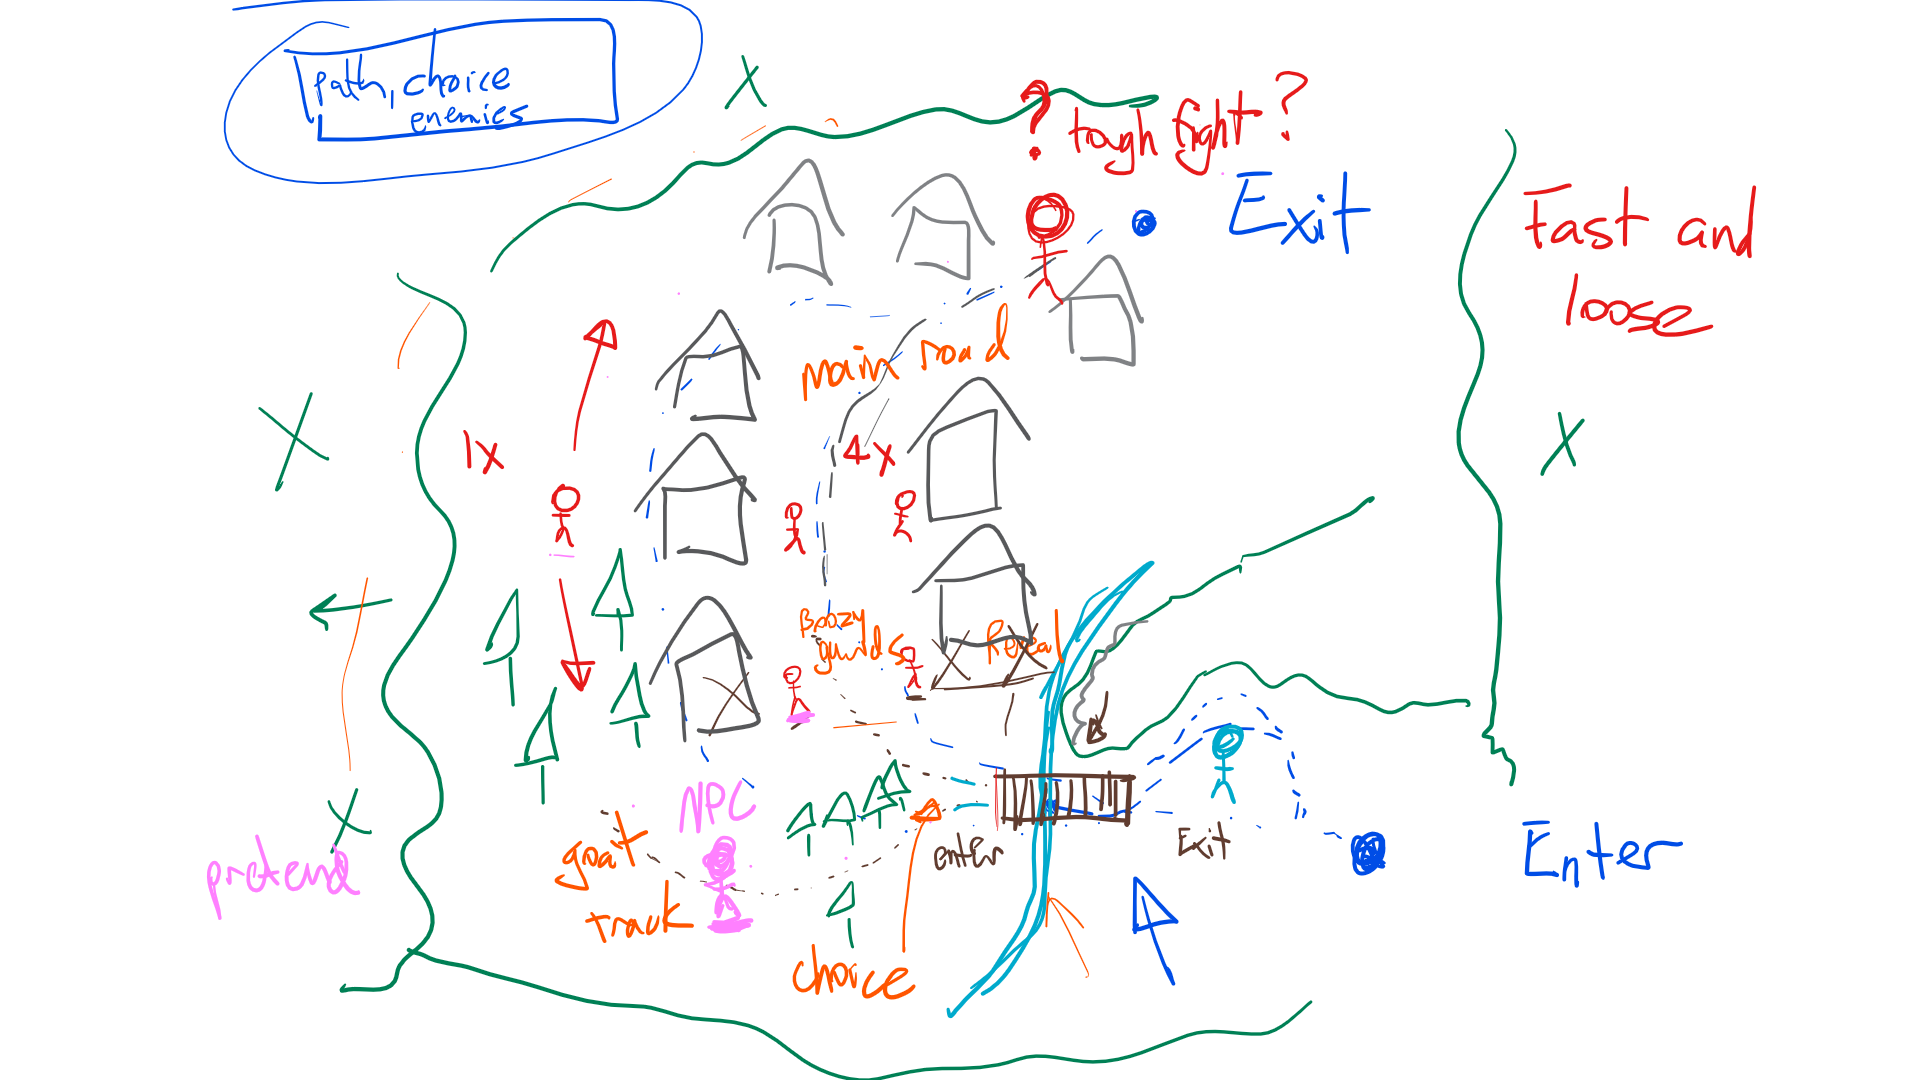 path, choice
enemies
? tough fight?
Exit
Fast and
loose
main road
1x
4x
Boozy
guilds
Reveal
NPC
goat
track
enter
Exit
Enter
pretend
choice